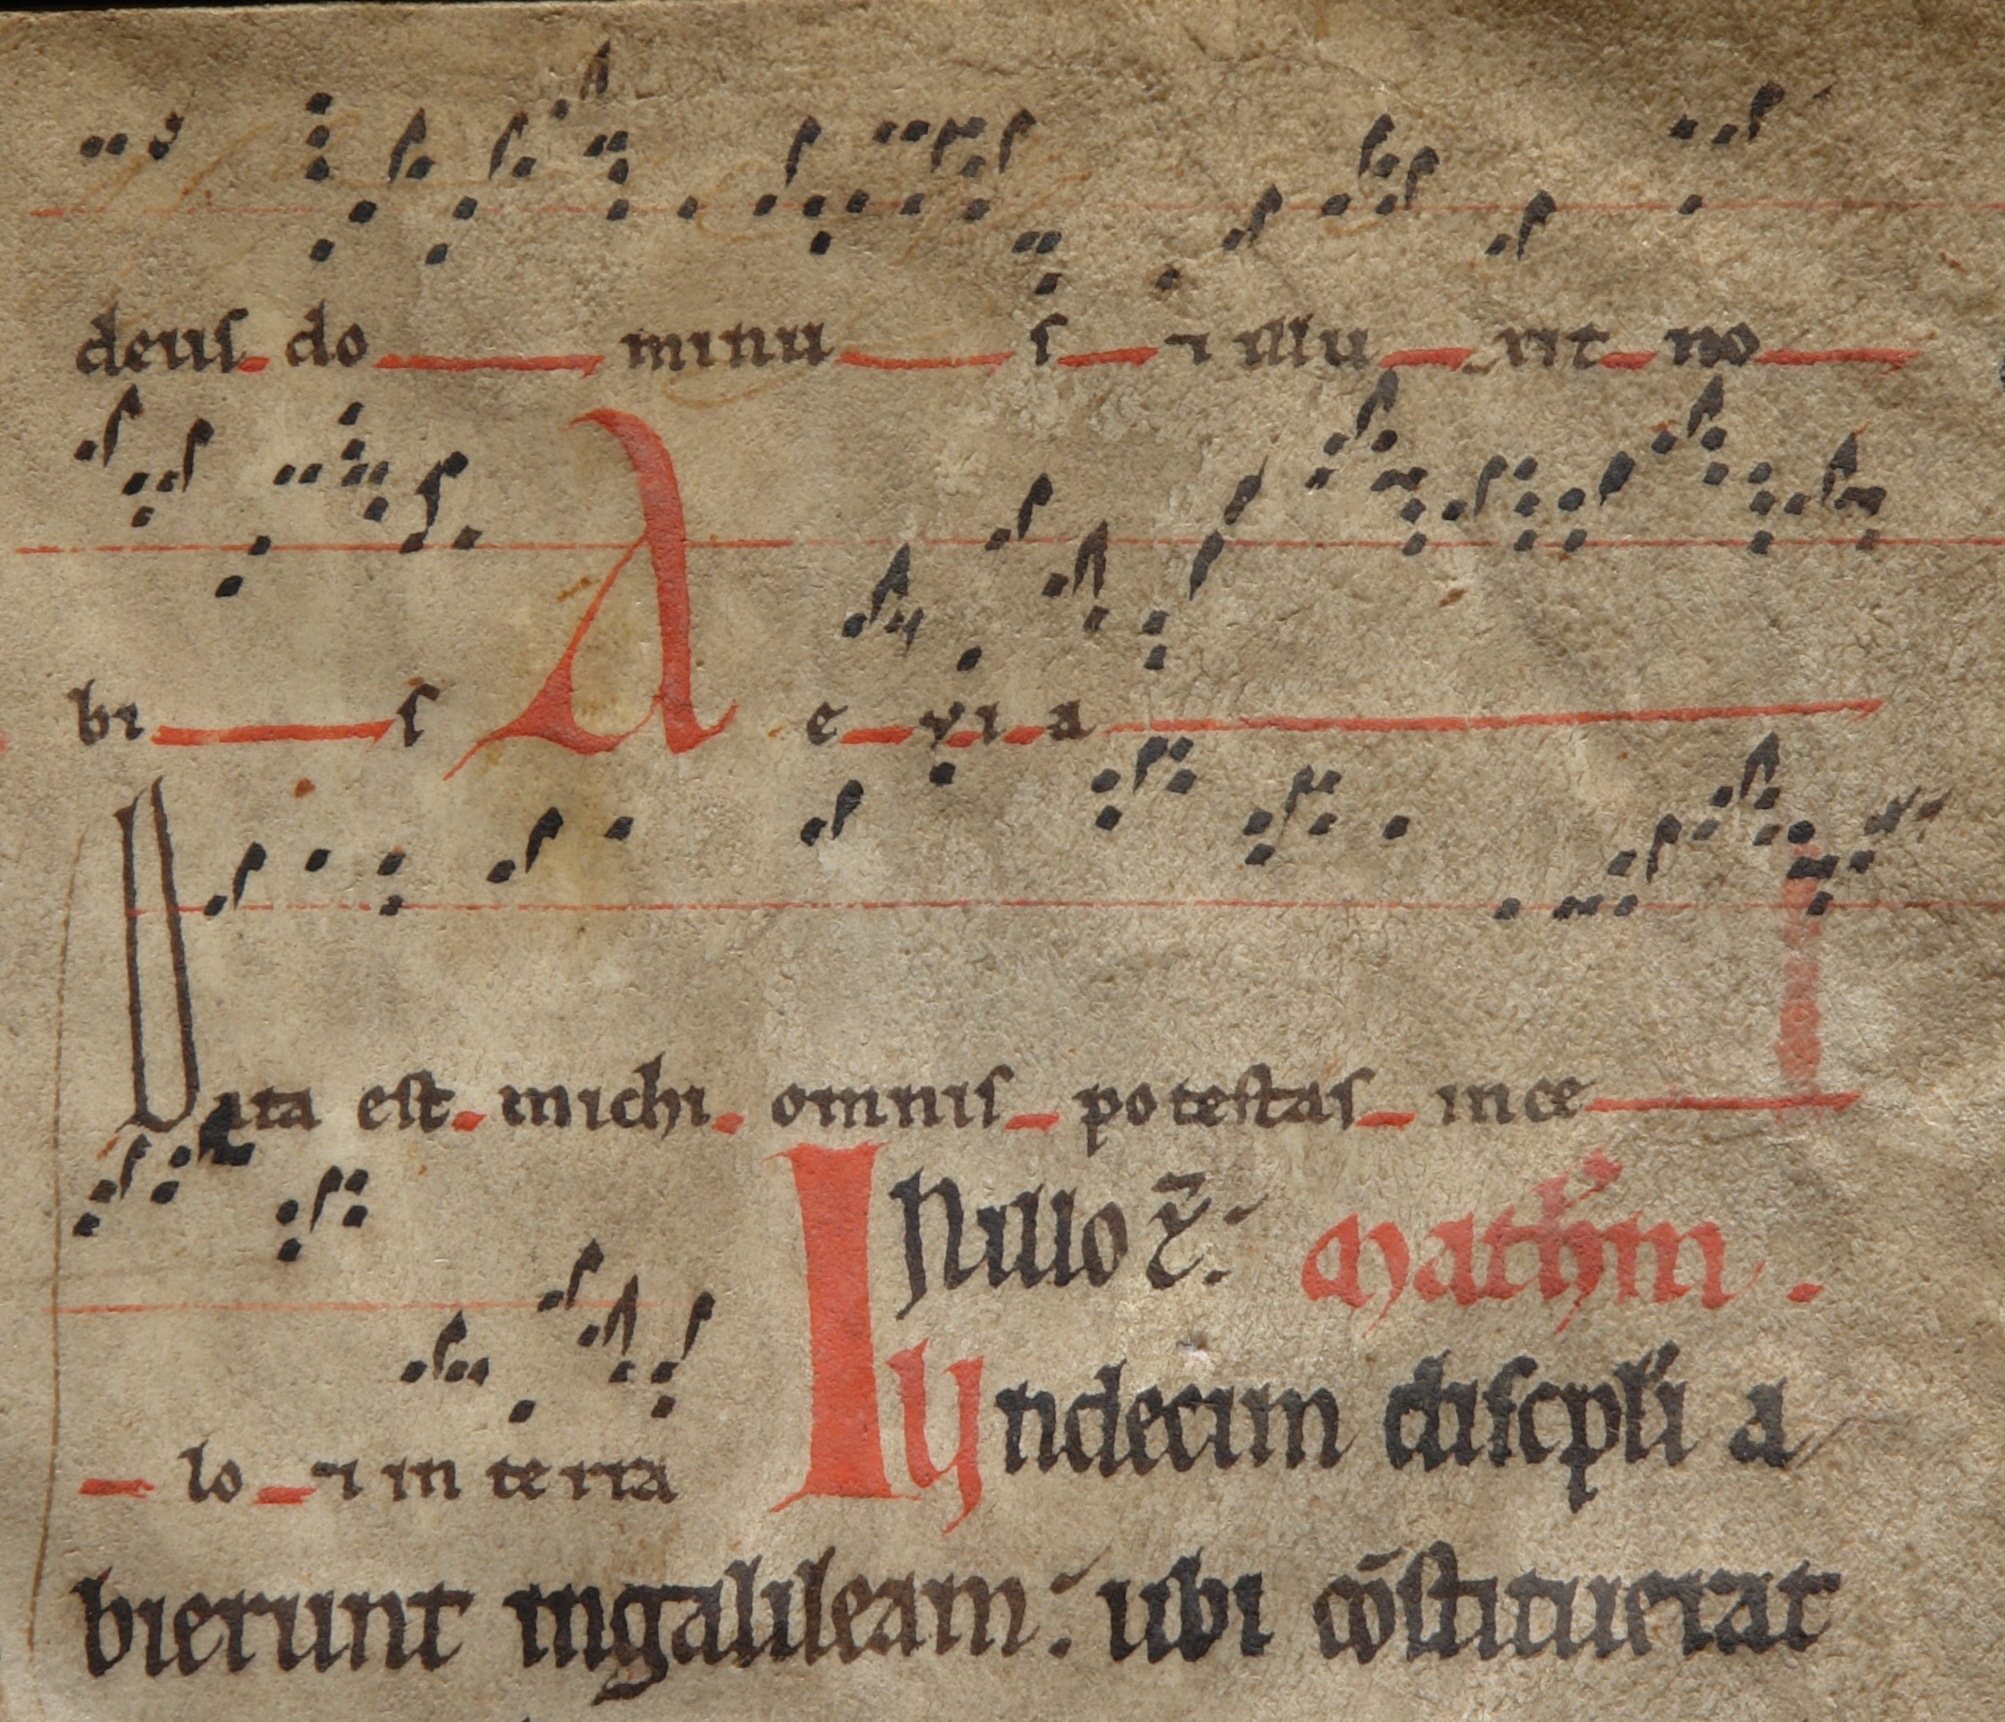 deus do minus ⁊ illuxit no
bis A evia
Data est michi omnis potestas in ce
lo ⁊ in terra
IN illo t̄. Mathm̄.
Undecim discipl'i a
bierunt ingalileam: ubi cōstituerat